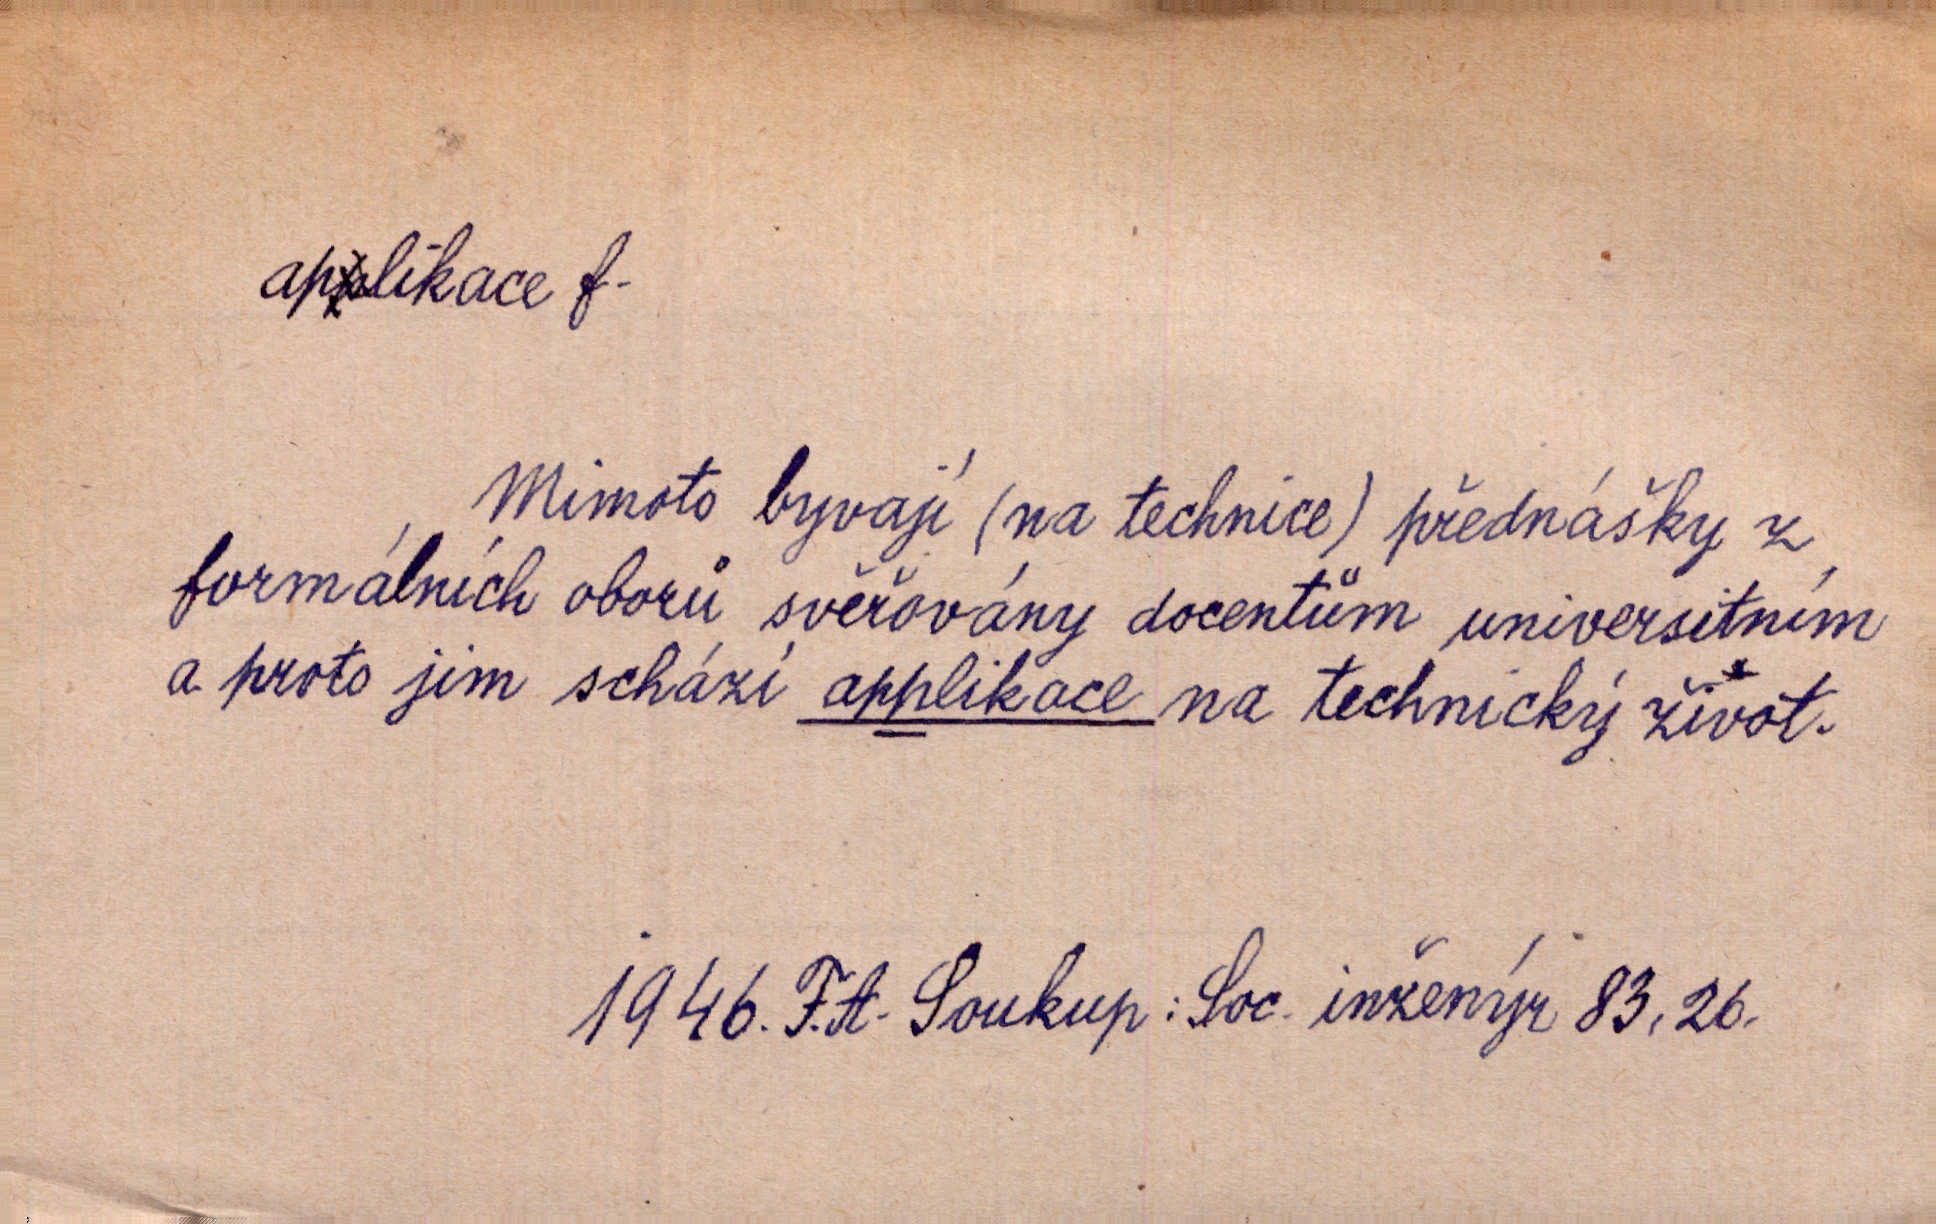 aplikace f.
Mimoto bývají (na technice) přednášky z
formálních oborů svěřovány docentům universitním
a proto jim schází applikace na technický život.
1946. F.A. Soukup: Soc. inženýr 83, 26.